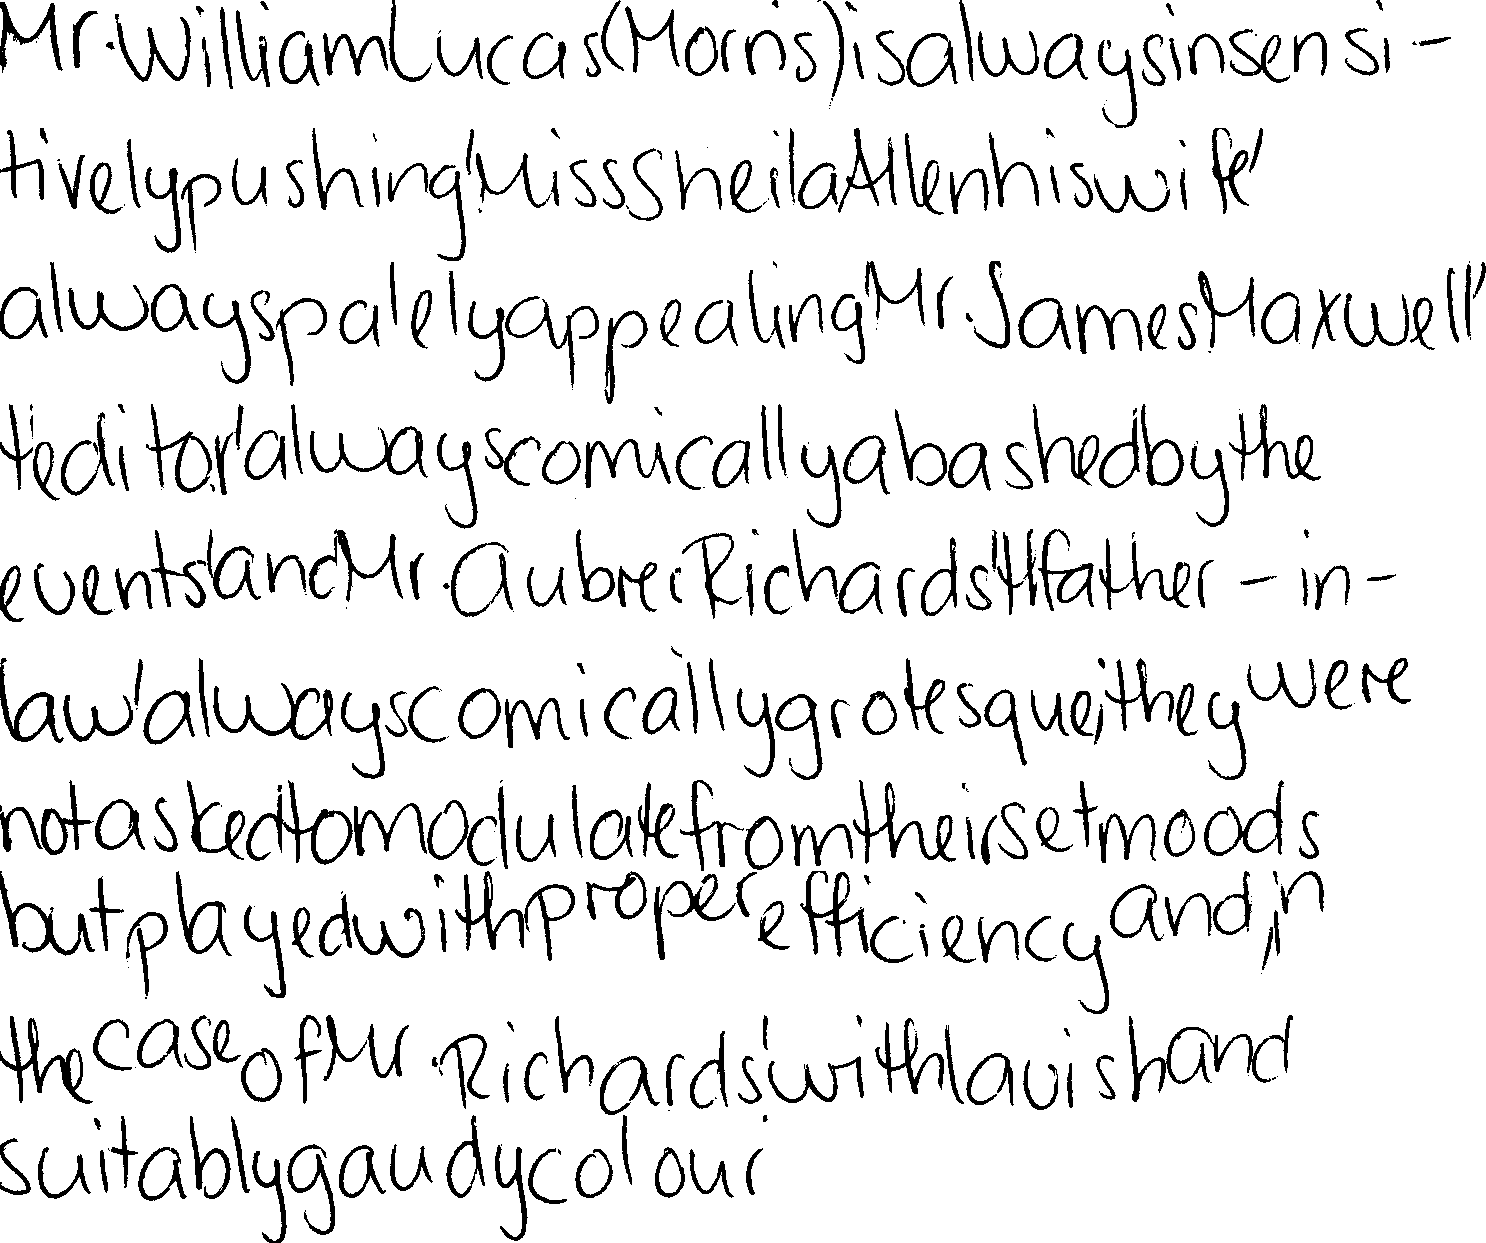 Mr. William Lucas (Morris) is always insensi-
tively pushing, Miss Sheila Allen, his wife,
always palely appealing, Mr. James Maxwell,
t'editor, always comically abashed by the
events, and Mr. Aubrei Richards, t'father-in-
law, always comically grotesque; they were
not asked to modulate from their set moods
but played with proper efficiency and, in
the case of Mr. Richards, with lavish and
suitably gaudy colour.